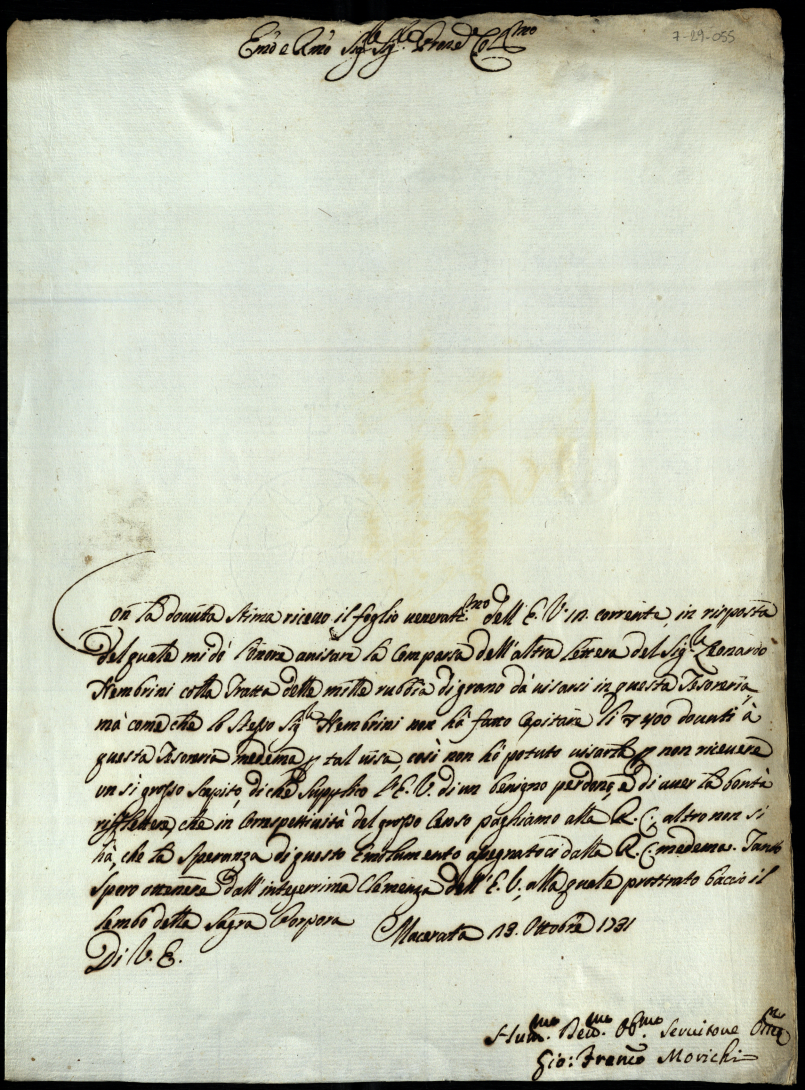 7-29-055
Emo e Rmo Sigre Sigre Prone Colmo
Con la dovuta stima ricevo il foglio veneratmo dell'E. V. in corrente, in risposta
del quale mi dò l'onore avisare la comparsa dell'altra lettera del Sigr Leonardo
Nembrini colla Tratta delle mille rubbia di grano da visarsi in questa Tesoreria,
ma come che lo stesso Sigr Nembrini non hà fatto capitare li 400 dovuti à
questa Tesoreria medema p tal visa, così non hò potuto visarla p non ricevere
un si grosso scapito, di che supplico l'E. V. di un benigno perdono, e di aver la bontà
riflettere, che in correspettività del grosso Censo paghiamo alla R. C., altro non si
hà, che la speranza di questo Emolumento assegnatoci dalla R. C. medema. Tanto
spero ottenere dall'integerrima Clemenza dell'E. V., alla quale prostrato baccio il
lembo della Sagra Porpora Macerata 13. Ottobre 1731
Di V. E.
Humo. Devmo. Obmo. Servitore
Gio: Franco Morichi